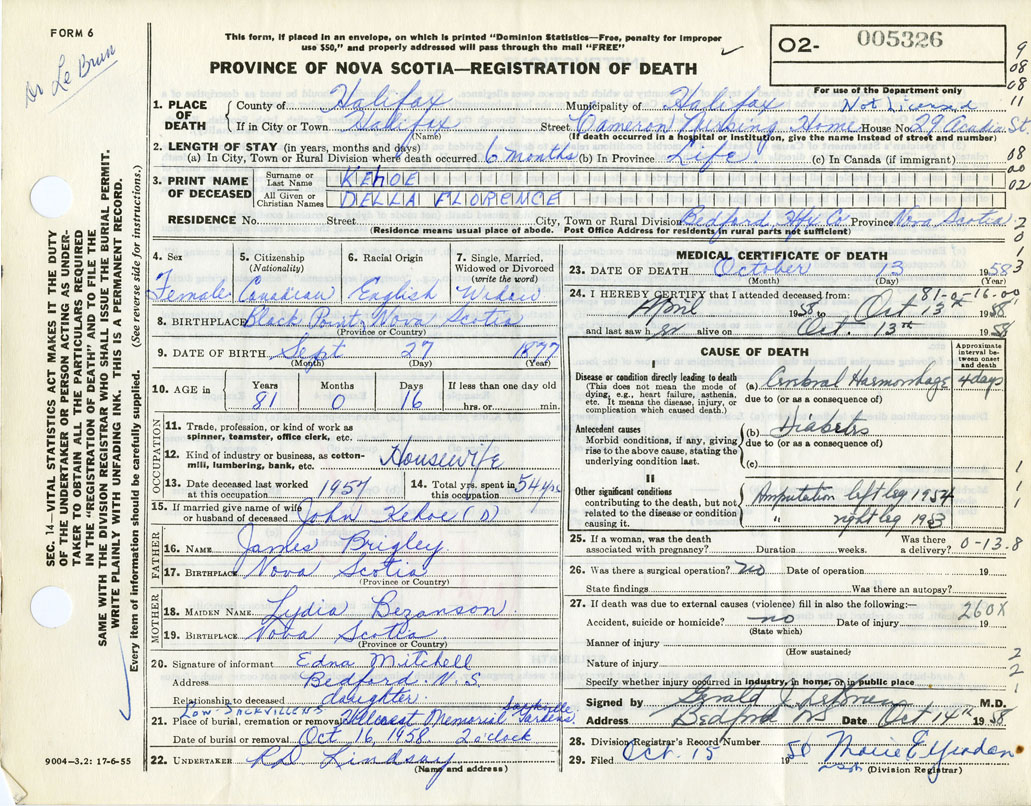 FORM 6
Dr Le Brun
This form, if placed in an envelope, on which is printed "Dominion Statistics—Free, penalty for improper
use $50," and properly addressed will pass through the mail "FREE"
PROVINCE OF NOVA SCOTIA—REGISTRATION OF DEATH
O2- 005326
For use of the Department only
1. PLACE OF DEATH
County of Halifax Municipality of Halifax Not licensed
If in City or Town Halifax Street Cameron Nursing Home House No. 29 Acadia St
(Name) (If death occurred in a hospital or institution, give the name instead of street and number)
2. LENGTH OF STAY (in years, months and days)
(a) In City, Town or Rural Division where death occurred 6 months (b) In Province Life (c) In Canada (if immigrant)
3. PRINT NAME OF DECEASED
Surname or Last Name KEHOE
All Given or Christian Names DELLA FLORENCE
RESIDENCE No. Street City, Town or Rural Division Bedford, Hfx Co Province Nova Scotia
(Residence means usual place of abode. Post Office Address for residents in rural parts not sufficient)
4. Sex Female
5. Citizenship (Nationality) Canadian
6. Racial Origin English
7. Single, Married, Widowed or Divorced (write the word) Widow
8. BIRTHPLACE Black Point, Nova Scotia
(Province or Country)
9. DATE OF BIRTH Sept 27 1877
(Month) (Day) (Year)
10. AGE in Years 81 Months 0 Days 16 If less than one day old hrs. or min.
OCCUPATION
11. Trade, profession, or kind of work as spinner, teamster, office clerk, etc.
12. Kind of industry or business, as cotton-mill, lumbering, bank, etc. Housewife
13. Date deceased last worked at this occupation 1957
14. Total yrs. spent in this occupation 54 yrs
15. If married give name of wife or husband of deceased John Kehoe (D)
FATHER
16. NAME James Brigley
17. BIRTHPLACE Nova Scotia
(Province or Country)
MOTHER
18. MAIDEN NAME Lydia Bezanson
19. BIRTHPLACE Nova Scotia
(Province or Country)
20. Signature of informant Edna Mitchell
Address Bedford N.S.
Relationship to deceased daughter
Low-Sackville NS
21. Place of burial, cremation or removal Hillcrest Memorial Gardens Sackville
Date of burial or removal Oct 16, 1958 2 o'clock
22. UNDERTAKER R D Lindsay
(Name and address)
MEDICAL CERTIFICATE OF DEATH
23. DATE OF DEATH October 13 1958
(Month) (Day) (Year)
81-0-16-00
24. I HEREBY CERTIFY that I attended deceased from:
April 1958 to Oct 13th 1958
and last saw her alive on Oct. 13th 1958
CAUSE OF DEATH
Approximate interval between onset and death
I
Disease or condition directly leading to death
(This does not mean the mode of dying, e.g., heart failure, asthenia, etc. It means the disease, injury, or complication which caused death.)
(a) Cerebral Haemorrhage 4 days
due to (or as a consequence of)
Antecedent causes
Morbid conditions, if any, giving rise to the above cause, stating the underlying condition last.
(b) Diabetes
due to (or as a consequence of)
(c)
II
Other significant conditions
contributing to the death, but not related to the disease or condition causing it.
Amputation left leg 1954
" right leg 1953
25. If a woman, was the death associated with pregnancy? Duration weeks. Was there a delivery? 0-13-8
26. Was there a surgical operation? no Date of operation 19
State findings Was there an autopsy?
27. If death was due to external causes (violence) fill in also the following:— 260X
Accident, suicide or homicide? no Date of injury 19
(State which)
Manner of injury
(How sustained)
Nature of injury
Specify whether injury occurred in industry, in home, or in public place
Signed by Gerald J LeBrun M.D.
Address Bedford NS Date Oct 14th 1958
28. Division Registrar's Record Number
29. Filed Oct. 15 1958
(Division Registrar)
SEC. 14—VITAL STATISTICS ACT MAKES IT THE DUTY
OF THE UNDERTAKER OR PERSON ACTING AS UNDER-
TAKER TO OBTAIN ALL THE PARTICULARS REQUIRED
IN THE "REGISTRATION OF DEATH" AND TO FILE THE
SAME WITH THE DIVISION REGISTRAR WHO SHALL ISSUE THE BURIAL PERMIT.
WRITE PLAINLY WITH UNFADING INK. THIS IS A PERMANENT RECORD.
Every item of information should be carefully supplied. (See reverse side for instructions.)
9004—3.2: 17-6-55
9
08
08
11
08
00
02
2
0
1
3
1
1
1
2
2
1